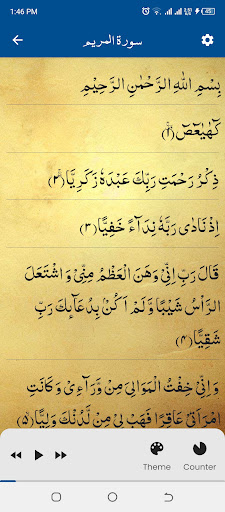 1:46 PM
سورة المريم
بِسْمِ اللهِ الرَّحْمٰنِ الرَّحِيْمِ
كٓهٰيٰعٓصٓ ﴿۱﴾
ذِكْرُ رَحْمَتِ رَبِّكَ عَبْدَهٗ زَكَرِيَّا ﴿۲﴾
اِذْ نَادٰى رَبَّهٗ نِدَآءً خَفِيًّا ﴿۳﴾
قَالَ رَبِّ اِنِّىْ وَهَنَ الْعَظْمُ مِنِّىْ وَ اشْتَعَلَ
الرَّاْسُ شَيْبًا وَّ لَمْ اَكُنْۢ بِدُعَآئِكَ رَبِّ
شَقِيًّا ﴿۴﴾
وَ اِنِّىْ خِفْتُ الْمَوَالِىَ مِنْ وَّرَآءِىْ وَ كَانَتِ
امْرَاَتِىْ عَاقِرًا فَهَبْ لِىْ مِنْ لَّدُنْكَ وَلِيًّا ﴿۵﴾
Theme Counter